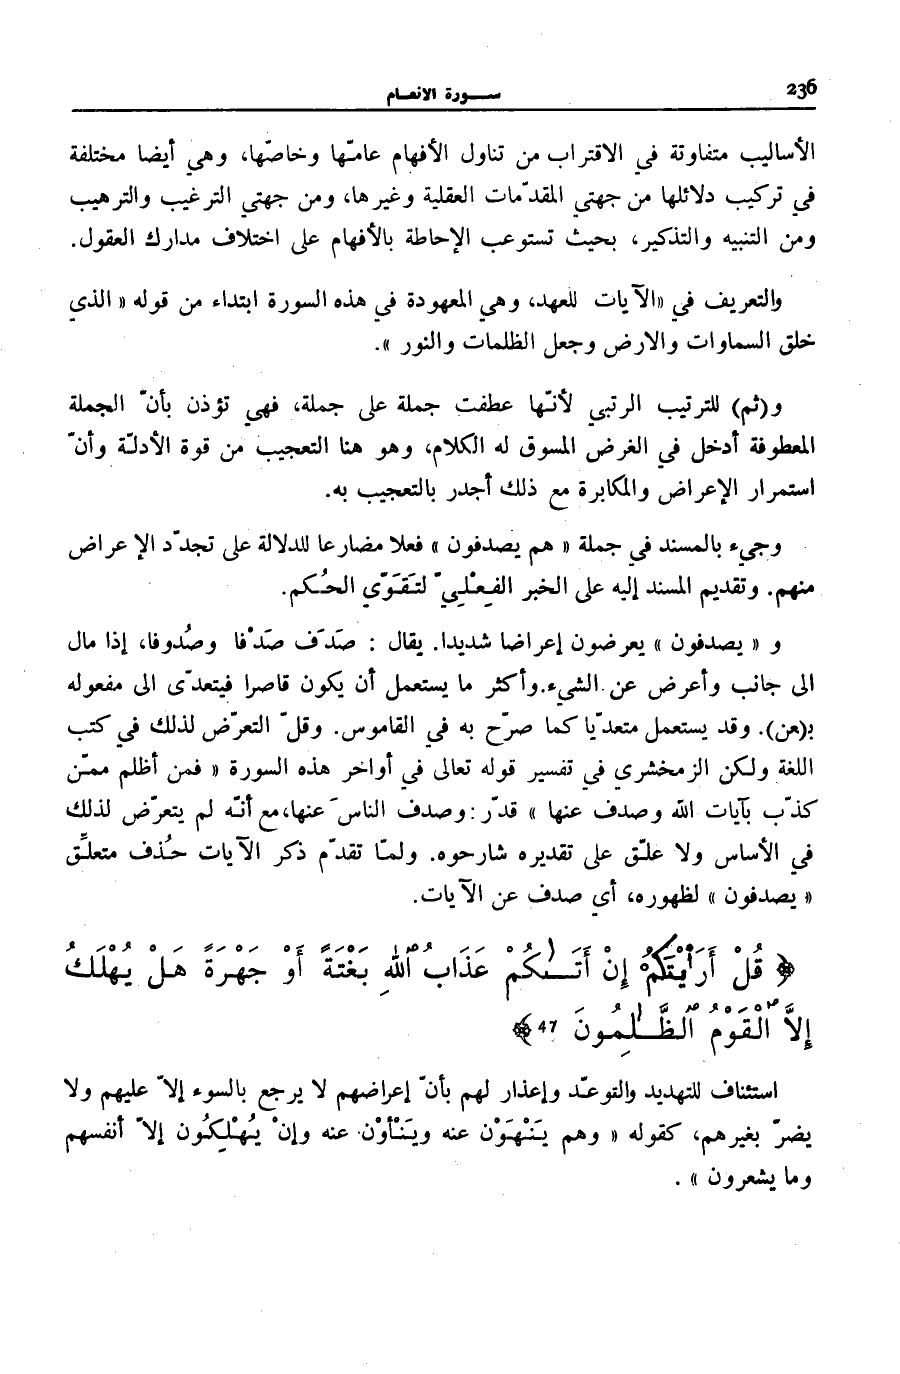 236
ســـورة الانعــام
الأساليب متفاوتة في الاقتراب من تناول الأفهام عامّها وخاصّها، وهي أيضا مختلفة
في تركيب دلائلها من جهتي المقدّمات العقلية وغيرها، ومن جهتي الترغيب والترهيب
ومن التنبيه والتذكير، بحيث تستوعب الإحاطة بالأفهام على اختلاف مدارك العقول.
والتعريف في «الآيات للعهد، وهي المعهودة في هذه السورة ابتداء من قوله « الذي
خلق السماوات والارض وجعل الظلمات والنور ».
و(ثم) للترتيب الرتبي لأنّها عطفت جملة على جملة، فهي تؤذن بأنّ الجملة
المعطوفة أدخل في الغرض المسوق له الكلام، وهو هنا التعجيب من قوة الأدلّة وأنّ
استمرار الإعراض والمكابرة مع ذلك أجدر بالتعجيب به.
وجيء بالمسند في جملة « هم يصدفون » فعلا مضارعا للدلالة على تجدّد الإعراض
منهم. وتقديم المسند إليه على الخبر الفِعْلِيّ لتَقَوّي الحُكم.
و « يصدفون » يعرضون إعراضا شديدا. يقال : صَدَف صَدْفا وصُدوفا، إذا مال
الى جانب وأعرض عن الشيء.وأكثر ما يستعمل أن يكون قاصرا فيتعدّى الى مفعوله
بـ(عن). وقد يستعمل متعدّيا كما صرّح به في القاموس. وقلّ التعرّض لذلك في كتب
اللغة ولكن الزمخشري في تفسير قوله تعالى في أواخر هذه السورة « فمن أظلم ممّن
كذّب بآيات الله وصدف عنها » قدّر :وصدف الناسَ عنها،مع أنّه لم يتعرّض لذلك
في الأساس ولا علّق على تقديره شارحوه. ولمّا تقدّم ذكر الآيات حُذف متعلَّق
« يصدفون » لظهوره، أي صدف عن الآيات.
﴿ قُلْ أَرَأَيْتَكُمْ إِنْ أَتَـــٰكُمْ عَذَابُ ٱللَّهِ بَغْتَةً أَوْ جَهْرَةً هَلْ يُهْلَكُ
إِلاَّ ٱلْقَوْمُ ٱلظَّـٰلِمُونَ 47 ﴾
استئناف للتهديد والتوعّد وإعذار لهم بأنّ إعراضهم لا يرجع بالسوء إلاّ عليهم ولا
يضرّ بغيرهم، كقوله « وهم يَنْهَوْن عنه ويَنْأَوْن عنه وإنْ يُهْلِكُون إلاّ أنفسهم
وما يشعرون » .